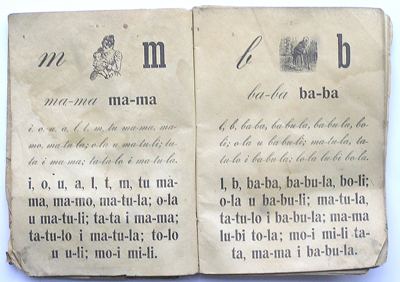 m m
ma-ma ma-ma
i, o, u, a, l, t, m, tu ma-ma, ma-
mo, ma-tu-la; o-la u ma-tu-li; ta-
ta i ma-ma; ta-ta-lo i ma-tu-la.
i, o, u, a, l, t, m, tu ma-
ma, ma-mo, ma-tu-la; o-la
u ma-tu-li; ta-ta i ma-ma;
ta-tu-lo i ma-tu-la; to-lo
u u-li; mo-i mi-li.
b b
ba-ba ba-ba
l, b, ba-ba, ba-bu-la, ba-bu-la, bo-
li; o-la u ba-bu-li; ma-tu-la, ta-
tu-lo i ba-bu-la; to-la lu-bi bo-la.
l, b, ba-ba, ba-bu-la, bo-li;
o-la u ba-bu-li; ma-tu-la,
ta-tu-lo i ba-bu-la; ma-ma
lu-bi to-la; mo-i mi-li ta-
ta, ma-ma i ba-bu-la.